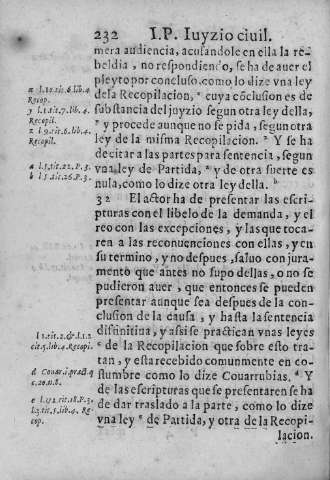 232 I.P. Iuyzio ciuil.
mera audiencia, acusandole en ella la re-
beldia, no respondiendo, se ha de auer el
pleyto por concluso. como lo dize vna ley
dela Recopilacion, ˣ cuya cõclusion es de
sabstancia del juyzio segun otra ley della,
ʸ y procede aunque no se pida, segun otra
ley de la misma Recopilacion. ᶻ Y se ha
de citar a las partes para sentencia, segun
vna ley de Partida, ᵃ y de otra suerte es
nula, como lo dize otra ley della. ᵇ
32 El actor ha de presentar las escri-
pturas con el libelo de la demanda, y el
reo con las excepciones, y las que toca-
ren a las reconuenciones con ellas, y en
su termino, y no despues, saluo con jura-
mento que antes no supo dellas, o no se
pudieron auer, que entonces se pueden
presentar aunque sea despues de la con-
clusion de la causa, y hasta la sentencia
difinitiua, y assi se practican vnas leyes
ᶜ de la Recopilacion que sobre esto tra-
tan, y esta recebido comunmente en co-
stumbre como lo dize Couarrubias. ᵈ Y
de las escripturas que se presentaren se ha
de dar traslado a la parte, como lo dize
vna ley ᵉ de Partida, y otra de la Recopi-
lacion.
l.10.tit.6.lib.4.
Recop.
y l.1.tit.7.lib.4.
Recopil.
z l.9.tit.6.lib.4.
Recopil.
a l.5.tit.22.P.3.
b l.5.tit.26.P.3.
l.1.tit.2.& l.1.2
tit.5.lib.4.Recopi.
d Couar.i pract.q
c.20.n.8.
e l.12.tit.18.P.3.
l.3.tit.5.lib.4. Re
cop.